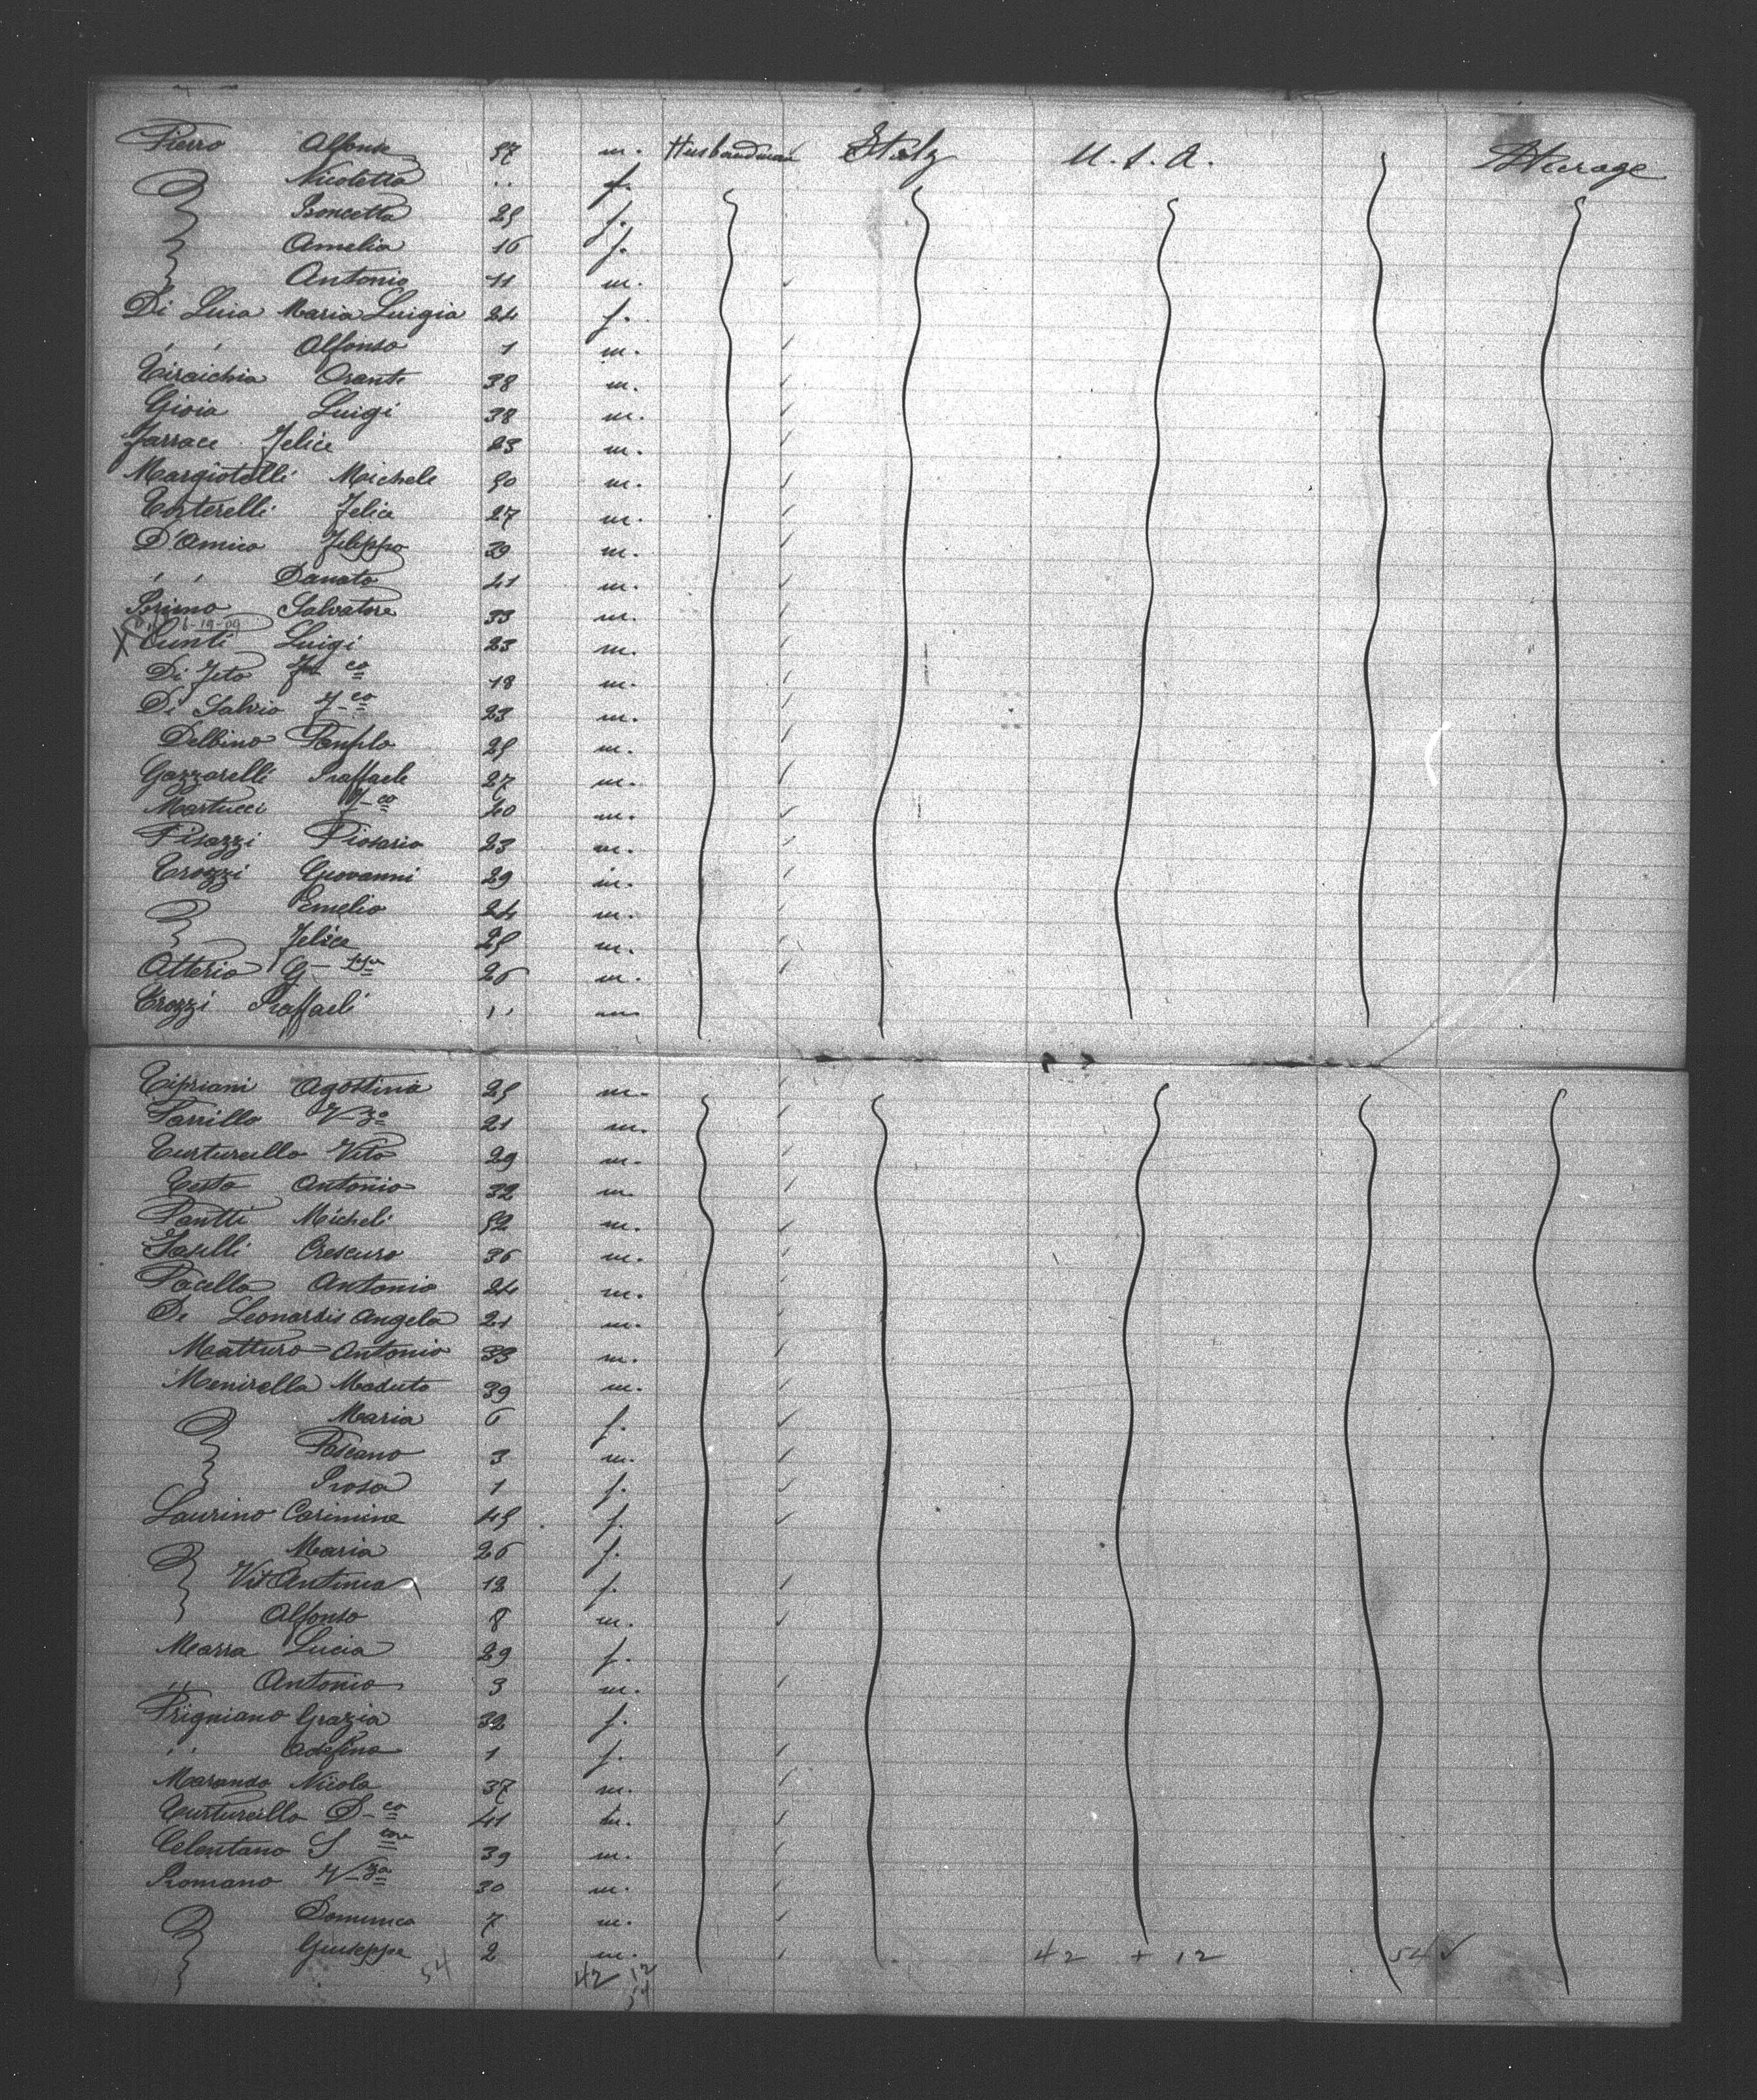 Pierro Alfonso 57 m. Husbandman Italy U.S.A. Steerage
Nicoletta " f.
Concetta 25 f.
Amelia 16 f.
Antonio 11 m.
Di Luia Maria Luigia 24 f.
" " Alfonso 1 m.
Orante 38 m.
Gioia Luigi 38 m.
Farrace Felice 23 m.
Margiotelli Michele 50 m.
Torterelli Felice 27 m.
D'Amico Filippo 39 m.
" " Donato 41 m.
Primo Salvatore 33 m.
6-19-09
X Cunti Luigi 23 m.
Di Feto co 18 m.
Di Salvio F-co 23 m.
Delbino Panfilo 25 m.
Gazzarelli Raffaele 27 m.
Martucci F-co 40 m.
Pisazzi Rosario 23 m.
Trozzi Giovanni 29 m.
Emelio 24 m.
Felice 25 m.
Atterio G-ppe 26 m.
Trozzi Raffaeli " m
Cipriani Agostino 25 m.
Parrillo V-zo 21 m.
Turturiello Vito 29 m.
Testa Antonio 32 m.
Pantti Micheli 52 m.
Iaselli Crescuro 36 m.
Pacella Antonio 24 m.
De Leonardis Angelo 21 m.
Matturo Antonio 33 m.
Menirella Maduto 39 m.
Maria 6 f.
Pascano 3 m.
Rosa 1 f.
Laurino Carimine 45 f.
Maria 26 f.
Vit Antinia 12 f.
Alfonso 8 m.
Marra Lucia 29 f.
" Antonio 3 m.
Prigniano Grazia 32 f.
" " Adefina 1 f.
Marando Nicola 37 m.
Turturiello D-co 41 m.
Celentano S 39 m.
Romano V-zo 30 m.
Domenico 7 m.
Giuseppe 2 m. 42 + 12 54 ✓
54 42 12
54